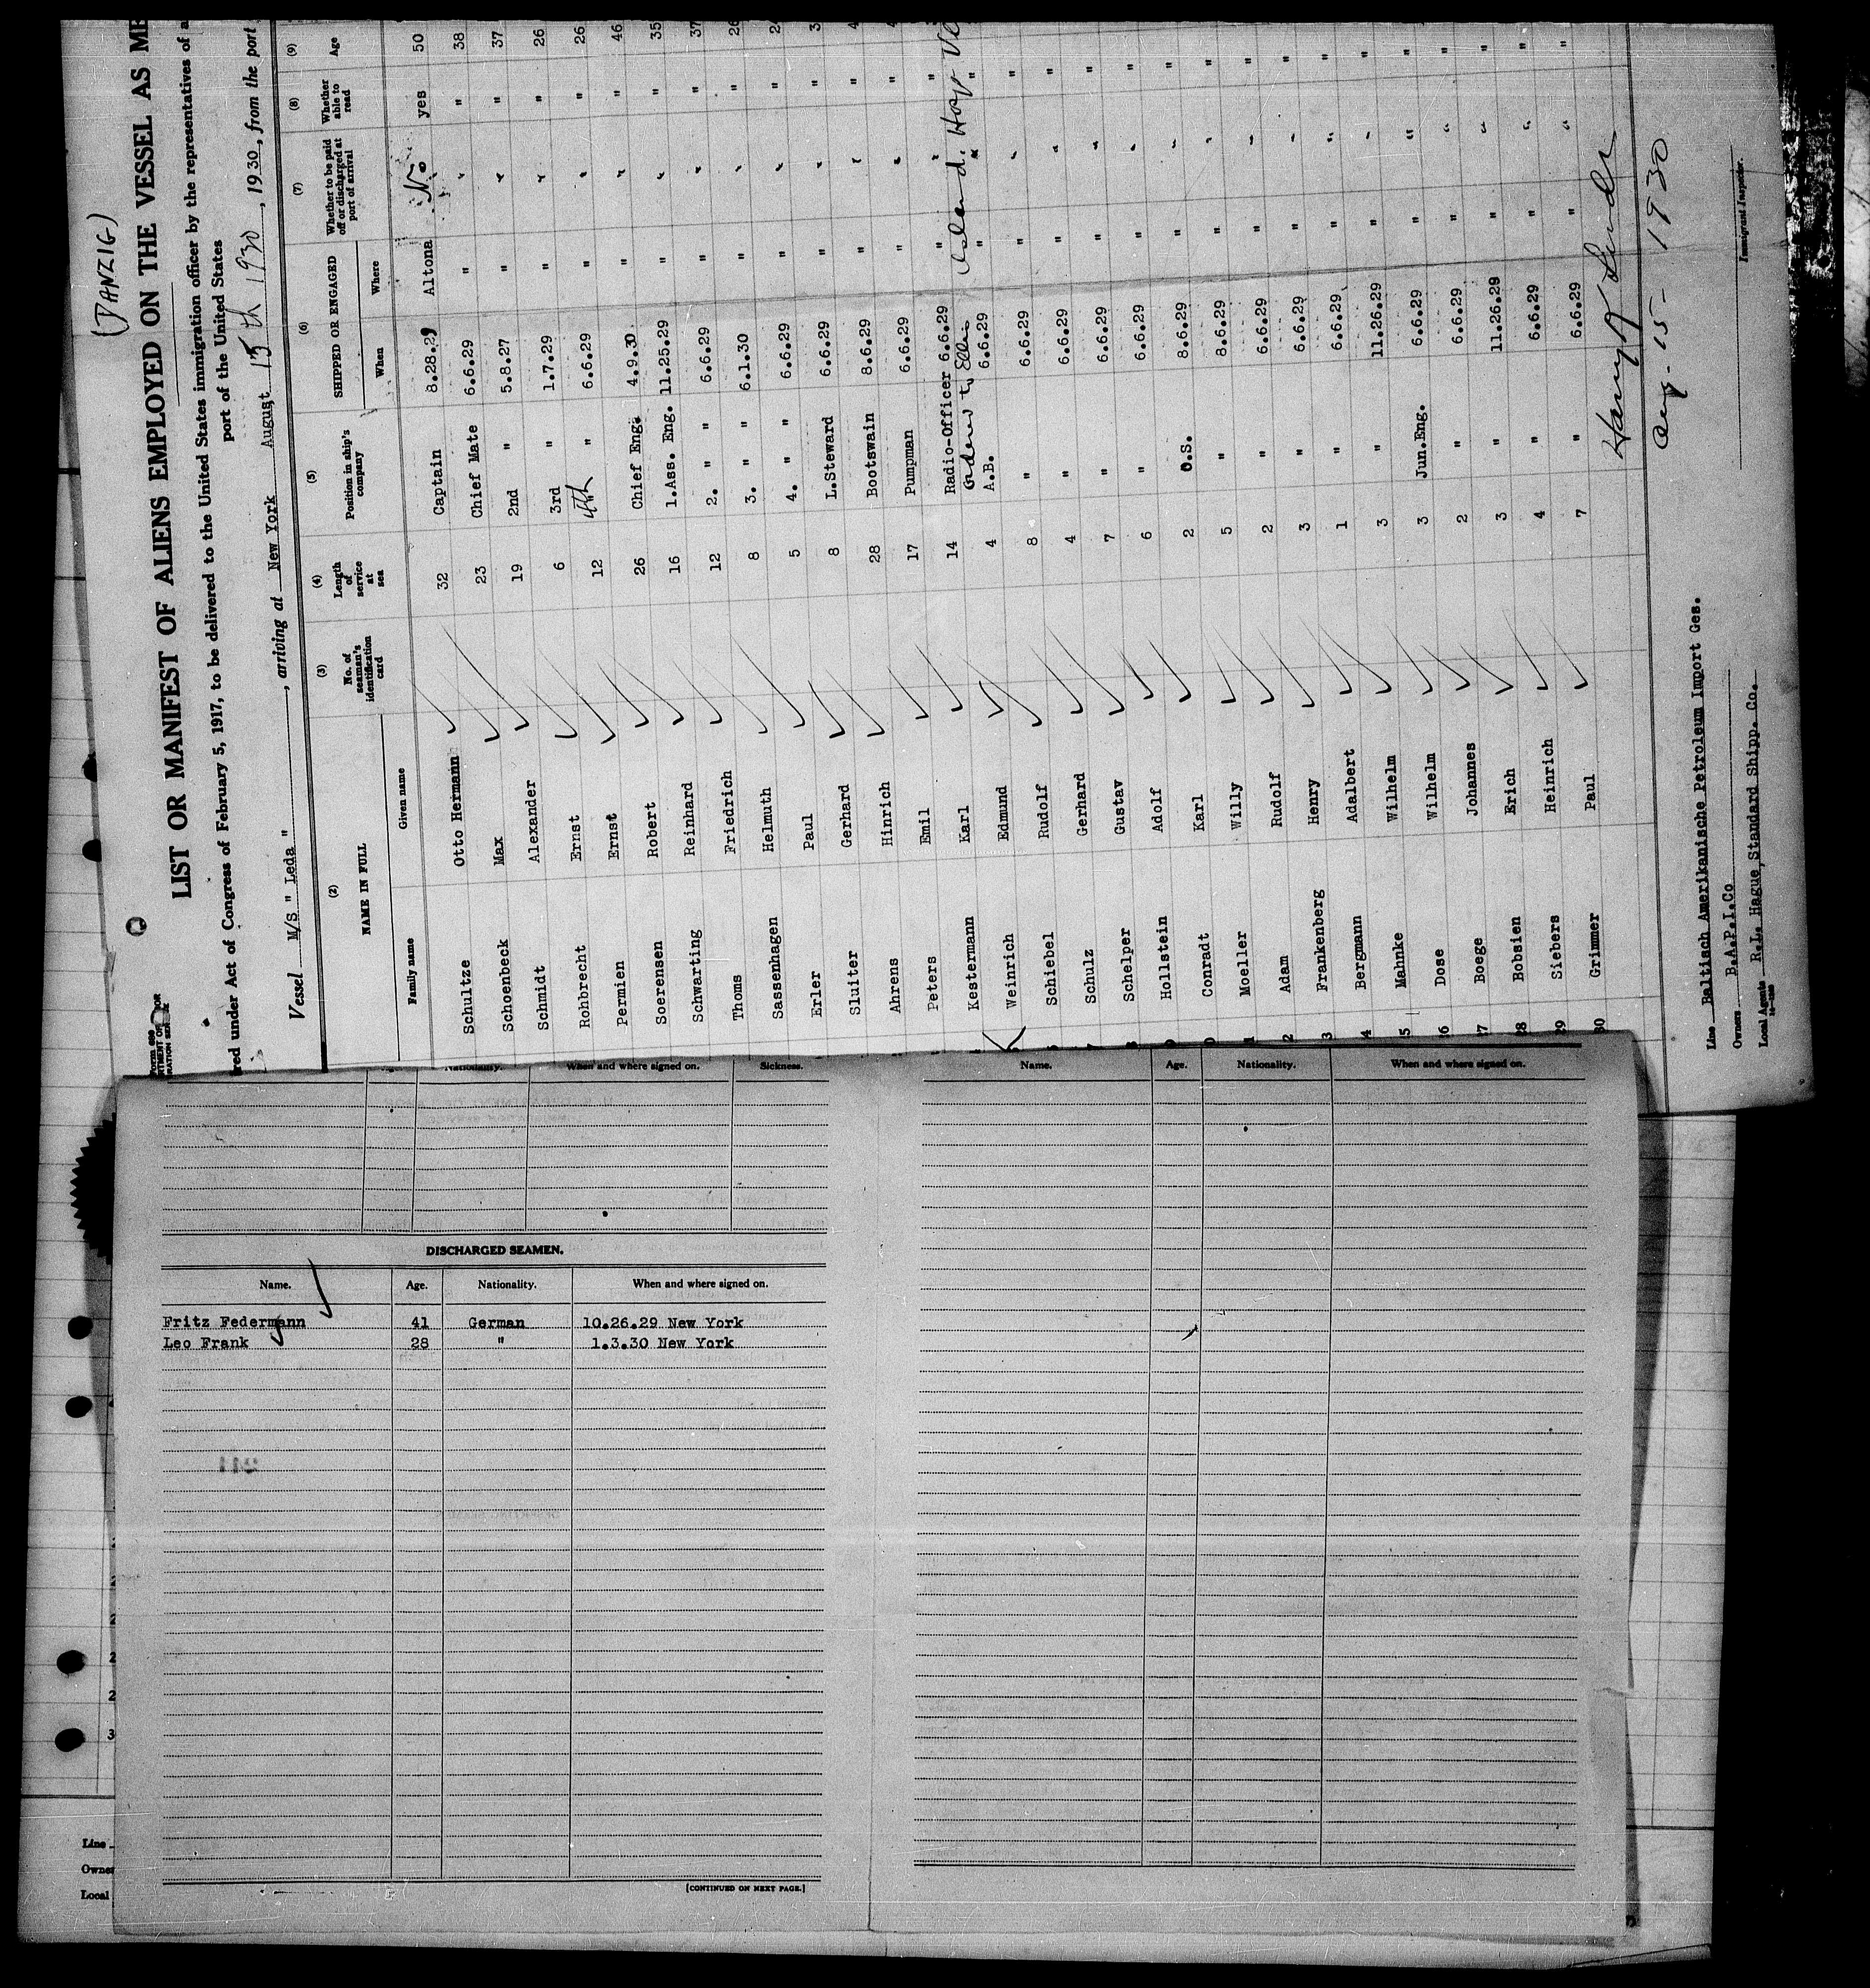 (DANZIG)
LIST OR MANIFEST OF ALIENS EMPLOYED ON THE VESSEL AS ME
red under Act of Congress of February 5, 1917, to be delivered to the United States immigration officer by the representatives of a
port of the United States
Vessel M/S " Leda ", arriving at New York August 15th 1930, 1930, from the port
(2) (3) (4) (5) (6) (7) (8) (9)
NAME IN FULL No. of seaman's identification card Length of service at sea Position in ship's company SHIPPED OR ENGAGED Whether to be paid off or discharged at port of arrival Whether able to read Age
Family name Given name When Where
Schultze Otto Hermann 32 Captain 8.28.29 Altona No. yes 50
Schoenbeck Max 23 Chief Mate 6.6.29 " " " 38
Schmidt Alexander 19 2nd " 5.8.27 " " " 37
Rohbrecht Ernst 6 3rd " 1.7.29 " " " 26
Permien Ernst 12 4th " 6.6.29 " " " 26
Soerensen Robert 26 Chief Eng. 4.9.30 " " " 46
Schwarting Reinhard 16 1.Ass. Eng. 11.25.29 " " " 35
Thoms Friedrich 12 2. " " 6.6.29 " " " 37
Sassenhagen Helmuth 8 3. " " 6.1.30 " " " 26
Erler Paul 5 4. " " 6.6.29 " " "
Sluiter Gerhard 8 L.Steward 6.6.29 " " "
Ahrens Hinrich 28 Bootswain 8.6.29 " " "
Peters Emil 17 Pumpman 6.6.29 " " "
Kestermann Karl 14 Radio-Officer 6.6.29 " " "
Ordered to Ellis Island. Hosp
Weinrich Edmund 4 A.B. 6.6.29 " " "
Schiebel Rudolf 8 " 6.6.29 " " " "
Schulz Gerhard 4 " 6.6.29 " " " "
Schelper Gustav 7 " 6.6.29 " " " "
Hollstein Adolf 6 " 6.6.29 " " " "
Conradt Karl 2 O.S. 8.6.29 " " " "
Moeller Willy 5 " 8.6.29 " " " "
Adam Rudolf 2 " 6.6.29 " " " "
Frankenberg Henry 3 " 6.6.29 " " " "
Bergmann Adalbert 1 " 6.6.29 " " " "
Mahnke Wilhelm 3 " 11.26.29 " " " "
Dose Wilhelm 3 Jun.Eng. 6.6.29 " " " "
Boege Johannes 2 " 6.6.29 " " " "
Bobsien Erich 3 " 11.26.29 " " " "
Siebers Heinrich 4 " 6.6.29 " " " "
Grimmer Paul 7 " 6.6.29 " " " "
Aug - 15 - 1930
Line Baltisch Amerikanische Petroleum Import Ges.
Owners B.A.P.I.Co
Immigrant Inspector.
Local Agents R.L. Hague, Standard Shipp. Co.
Nationality. When and where signed on. Sickness.
Name. Age. Nationality. When and where signed on.
DISCHARGED SEAMEN.
Name. Age. Nationality. When and where signed on.
Fritz Federmann 41 German 10.26.29 New York
Leo Frank 28 " 1.3.30 New York
[CONTINUED ON NEXT PAGE.]
Line
Owner
Local